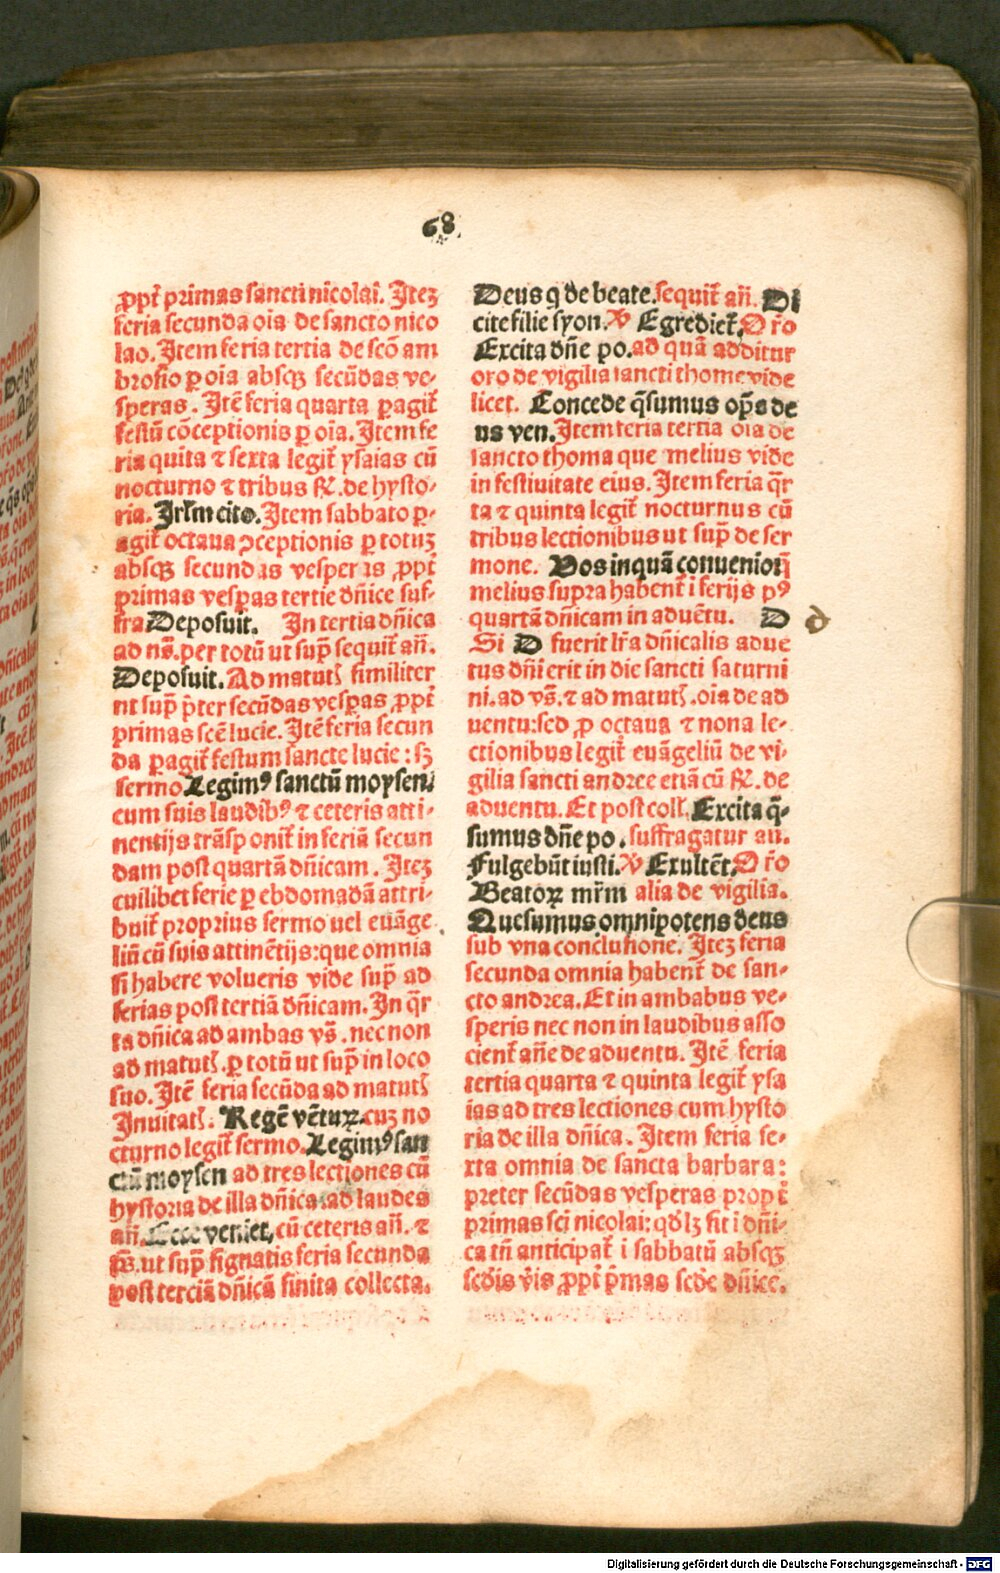 68
ꝓpt̄ primas sancti nicolai. Itez
feria secunda oīa de sancto nico
lao. Item feria tertia de scō am
brosio ꝑ oīa absqꝫ secūdas ve-
speras. Itē feria quarta ꝑagit̄
festū cōceptionis ꝑ oīa. Item fe
ria quīta ⁊ sexta legit̄ ysaias cū
nocturno ⁊ tribus ℟. de hysto-
ria. Irl̄m cito. Item sabbato ꝑ-
agit̄ octaua ꝯceptionis ꝑ totuꝫ
absqꝫ secundas vesperas ꝓpt̄
primas vesꝑas tertie dn̄ice suf-
fra Deposuit. In tertia dn̄ica
ad nā. per totū ut sup̄ sequit̄ an̄.
Deposuit. Ad matut̄ similiter
ut sup̄ p̄ter secūdas vesꝑas ꝓpt̄
primas scē lucie. Itē feria secun
da ꝑagit̄ festum sancte lucie: sꝫ
sermo Legimꝰ sanctū moysen.
cum suis laudibꝰ ⁊ ceteris atti-
nentijs trāsponit̄ in feriā secun
dam post quartā dn̄icam. Itez
cuilibet ferie ꝑ ebdomadā attri-
buit̄ proprius sermo uel euāge
liū cū suis attinētijs: que omnia
si habere volueris vide sup̄ ad
ferias post tertiā dn̄icam. In qr̄
ta dn̄ica ad ambas vs̄. nec non
ad matut̄. ꝑ totū ut sup̄ in loco
suo. Itē feria secūda ad matut̄
Inuitat̄: Regē vētuꝝ. cuz no
cturno legit̄ sermo. Legimꝰ san
ctū moysen ad tres lectiones cū
hystoria de illa dn̄ica. ad laudes
an̄. Ecce veniet, cū ceteris an̄. ⁊
ps̄. ut sup̄ signatis feria secunda
post terciā dn̄icā finita collecta.
Deus q̄ de beate. sequit̄ an̄. Di
cite filie syon. ℣ Egrediet̄. Or̄o
Excita dn̄e po. ad quā additur
oro de vigilia sancti thome vide
licet. Concede q̄sumus op̄s de
us ven. Item feria tertia oīa de
sancto thoma que melius vide
in festiuitate eius. Item feria qr̄
ta ⁊ quinta legit̄ nocturnus cū
tribus lectionibus ut sup̄ de ser
mone. Vos inquā conuenio q̄
melius supra habent̄ ī ferijs pꝰ
quartā dn̄icam in aduētu. D
Si D fuerit lr̄a dn̄icalis adue
tus dn̄i erit in die sancti saturni
ni. ad vs̄. ⁊ ad matut̄. oīa de ad
uentu: sed ꝓ octaua ⁊ nona le-
ctionibus legit̄ euāgeliū de vi-
gilia sancti andree etiā cū ℟. de
aduentu. Et post coll̄. Excita q̄-
sumus dn̄e po. suffragatur an.
Fulgebūt iusti. ℣ Exultēt. Or̄o
Beatoꝝ mr̄m alia de vigilia.
Quesumus omnipotens deus
sub vna conclusione. Itez feria
secunda omnia habent̄ de san-
cto andrea. Et in ambabus ve-
speris nec non in laudibus asso
cient̄ an̄e de aduentu. Itē feria
tertia quarta ⁊ quinta legit̄ ysa
ias ad tres lectiones cum hysto
ria de illa dn̄ica. Item feria se-
xta omnia de sancta barbara:
preter secūdas vesperas propt̄
primas sci nicolai: qd̄ lꝫ fit ī dn̄i-
ca tn̄ anticipat̄ ī sabbatū absqꝫ
scd̄is vīs ꝓpt̄ p̄mas scd̄e dn̄ice.
Digitalisierung gefördert durch die Deutsche Forschungsgemeinschaft - DFG